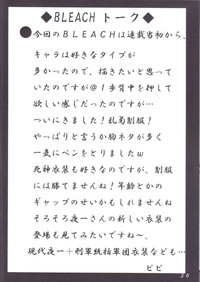 ◆BLEACHトーク◆
●今回のBLEACHは連載当初から、
キャラは好きなタイプが
多かったので、描きたいと思って
いたのですが@1歩背中を押して
欲しい感じだったのですが…
ついにきました!乱菊制服!
やっぱりと言うか胸ネタが多く
一気にペンをとりましたw
死神衣装も好きなのですが、制服
には勝てませんね!年齢とかの
ギャップのせいかもしれませんね
そろそろ夜一さんの新しい衣装の
登場も見てみたいですね~、
現代夜一+刑軍統括軍団衣装なども…
ビビ